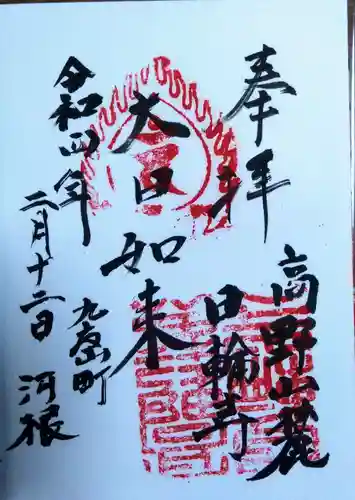 奉拝
高野山麓
日輪寺
大日如来
九度山町
河根
令和四年
二月十二日